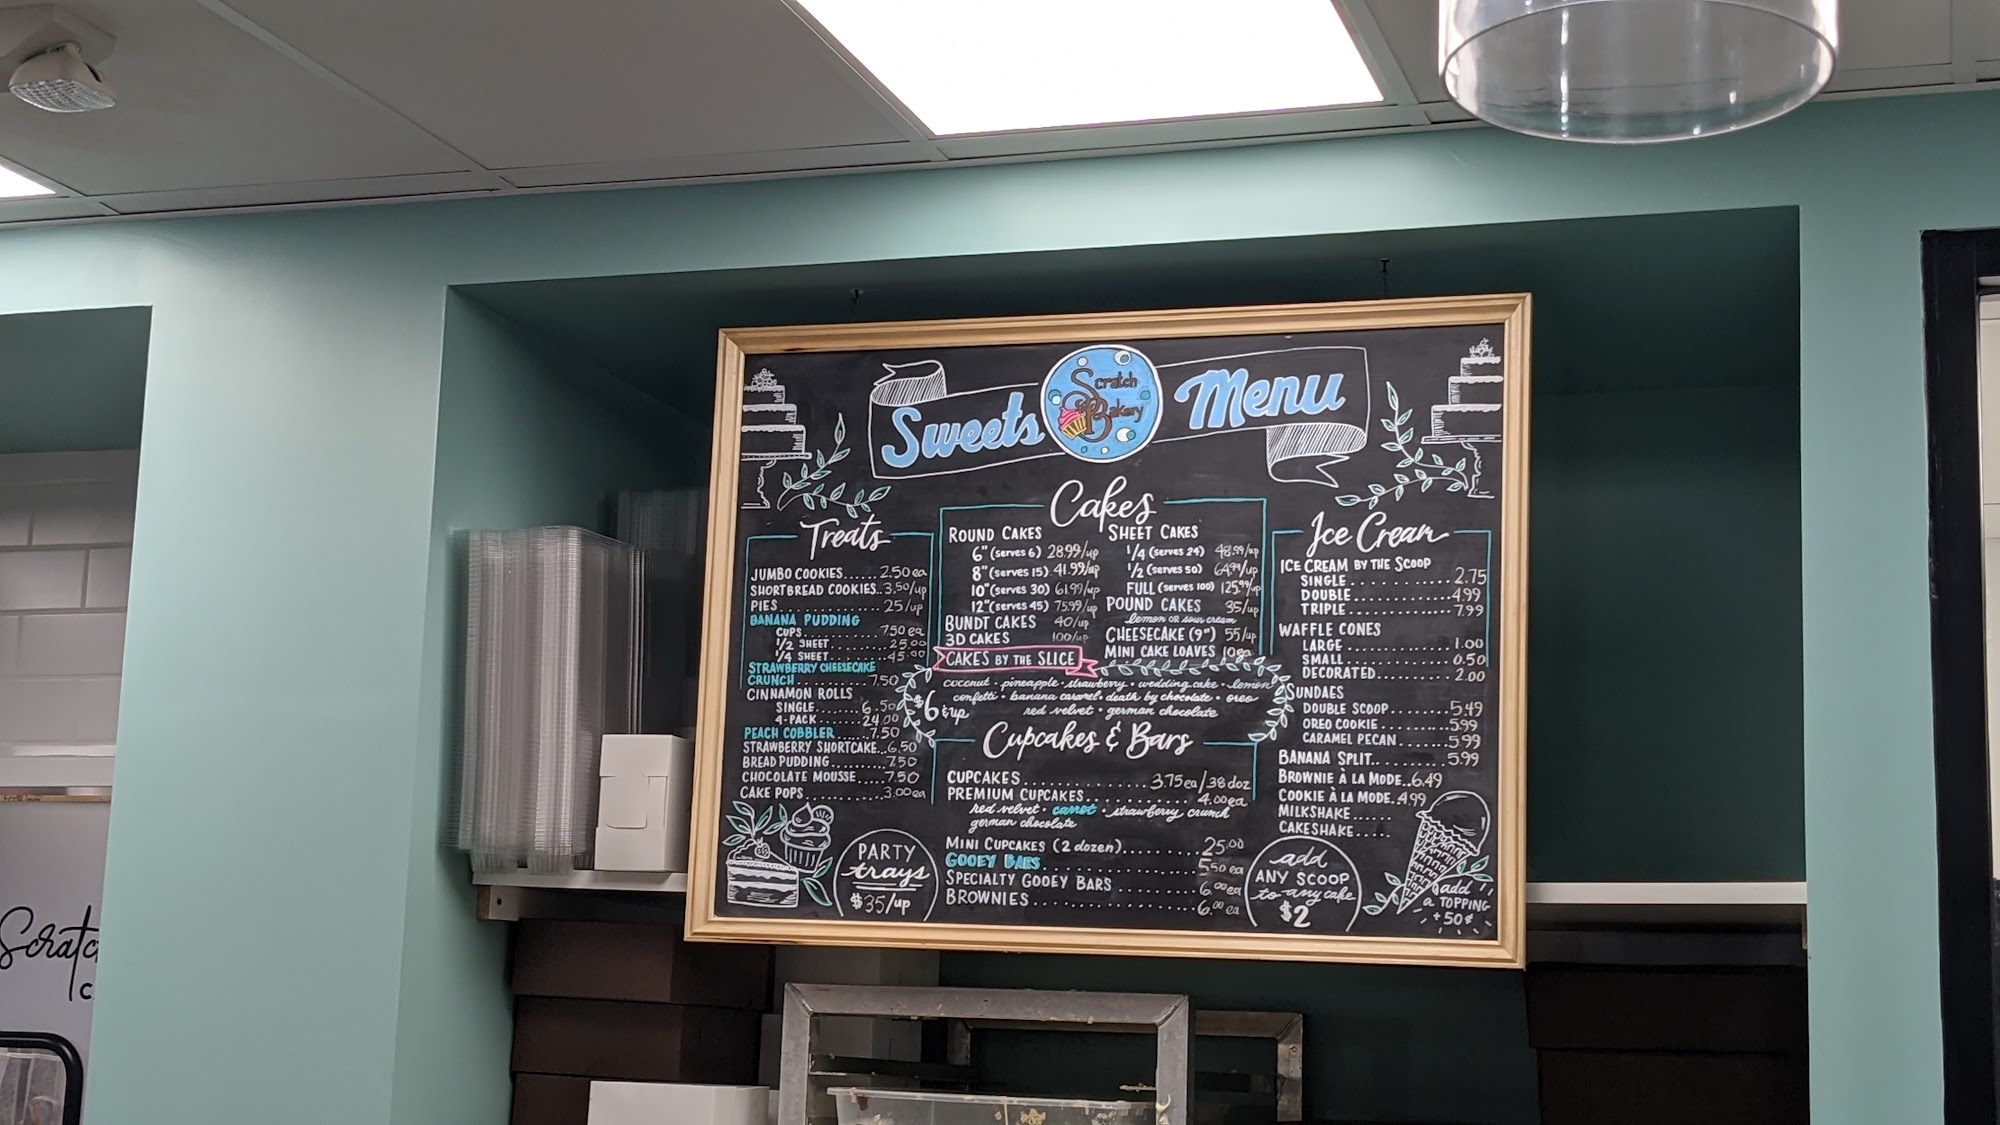 Sweets
Scratch
Bakery
Menu
Treats
JUMBO COOKIES...... 2.50 ea
SHORTBREAD COOKIES..3.50/up
PIES ............. 25/up
BANANA PUDDING
CUPS .......... 7.50 ea
1/2 SHEET........ 25.00
1/4 SHEET ........ 45.00
STRAWBERRY CHEESECAKE
CRUNCH ........... 7.50
CINNAMON ROLLS
SINGLE....... 6.50
4-PACK ....... 24.00
PEACH COBBLER .....7.50
STRAWBERRY SHORTCAKE...6.50
BREAD PUDDING........7.50
CHOCOLATE MOUSSE .....7.50
CAKE POPS ..........3.00ea
PARTY
trays
$35/up
Cakes
ROUND CAKES
6" (serves 6) 28.99/up
8" (serves 15) 41.99/up
10" (serves 30) 61.99/up
12" (serves 45) 75.99/up
BUNDT CAKES 40/up
3D CAKES 100/up
SHEET CAKES
1/4 (serves 24) 48.99/up
1/2 (serves 50) 64.99/up
FULL (serves 100) 125.99/up
POUND CAKES 35/up
lemon OR sour cream
CHEESECAKE (9") 55/up
MINI CAKE LOAVES 10ea
CAKES BY THE SLICE
$6 & up
coconut • pineapple • strawberry • wedding cake • lemon
confetti • banana caramel • death by chocolate • oreo
red velvet • german chocolate
Cupcakes & Bars
CUPCAKES .............. 3.75 ea/38 doz
PREMIUM CUPCAKES............ 4.00 ea
red velvet • carrot • strawberry crunch
german chocolate
MINI CUPCAKES (2 dozen)......... 25.00
GOOEY BARS ............... 5.50 ea
SPECIALTY GOOEY BARS ......... 6.00 ea
BROWNIES ................ 6.00 ea
Ice Cream
ICE CREAM BY THE SCOOP
SINGLE ............ 2.75
DOUBLE ............ 4.99
TRIPLE ............. 7.99
WAFFLE CONES
LARGE ............. 1.00
SMALL ............. 0.50
DECORATED......... 2.00
SUNDAES
DOUBLE SCOOP ......... 5.49
OREO COOKIE ......... 5.99
CARAMEL PECAN ....... 5.99
BANANA SPLIT.......... 5.99
BROWNIE À LA MODE..6.49
COOKIE À LA MODE..4.99
MILKSHAKE......
CAKESHAKE.....
add
ANY SCOOP
to any cake
$2
add
a TOPPING
+50¢
Scratch